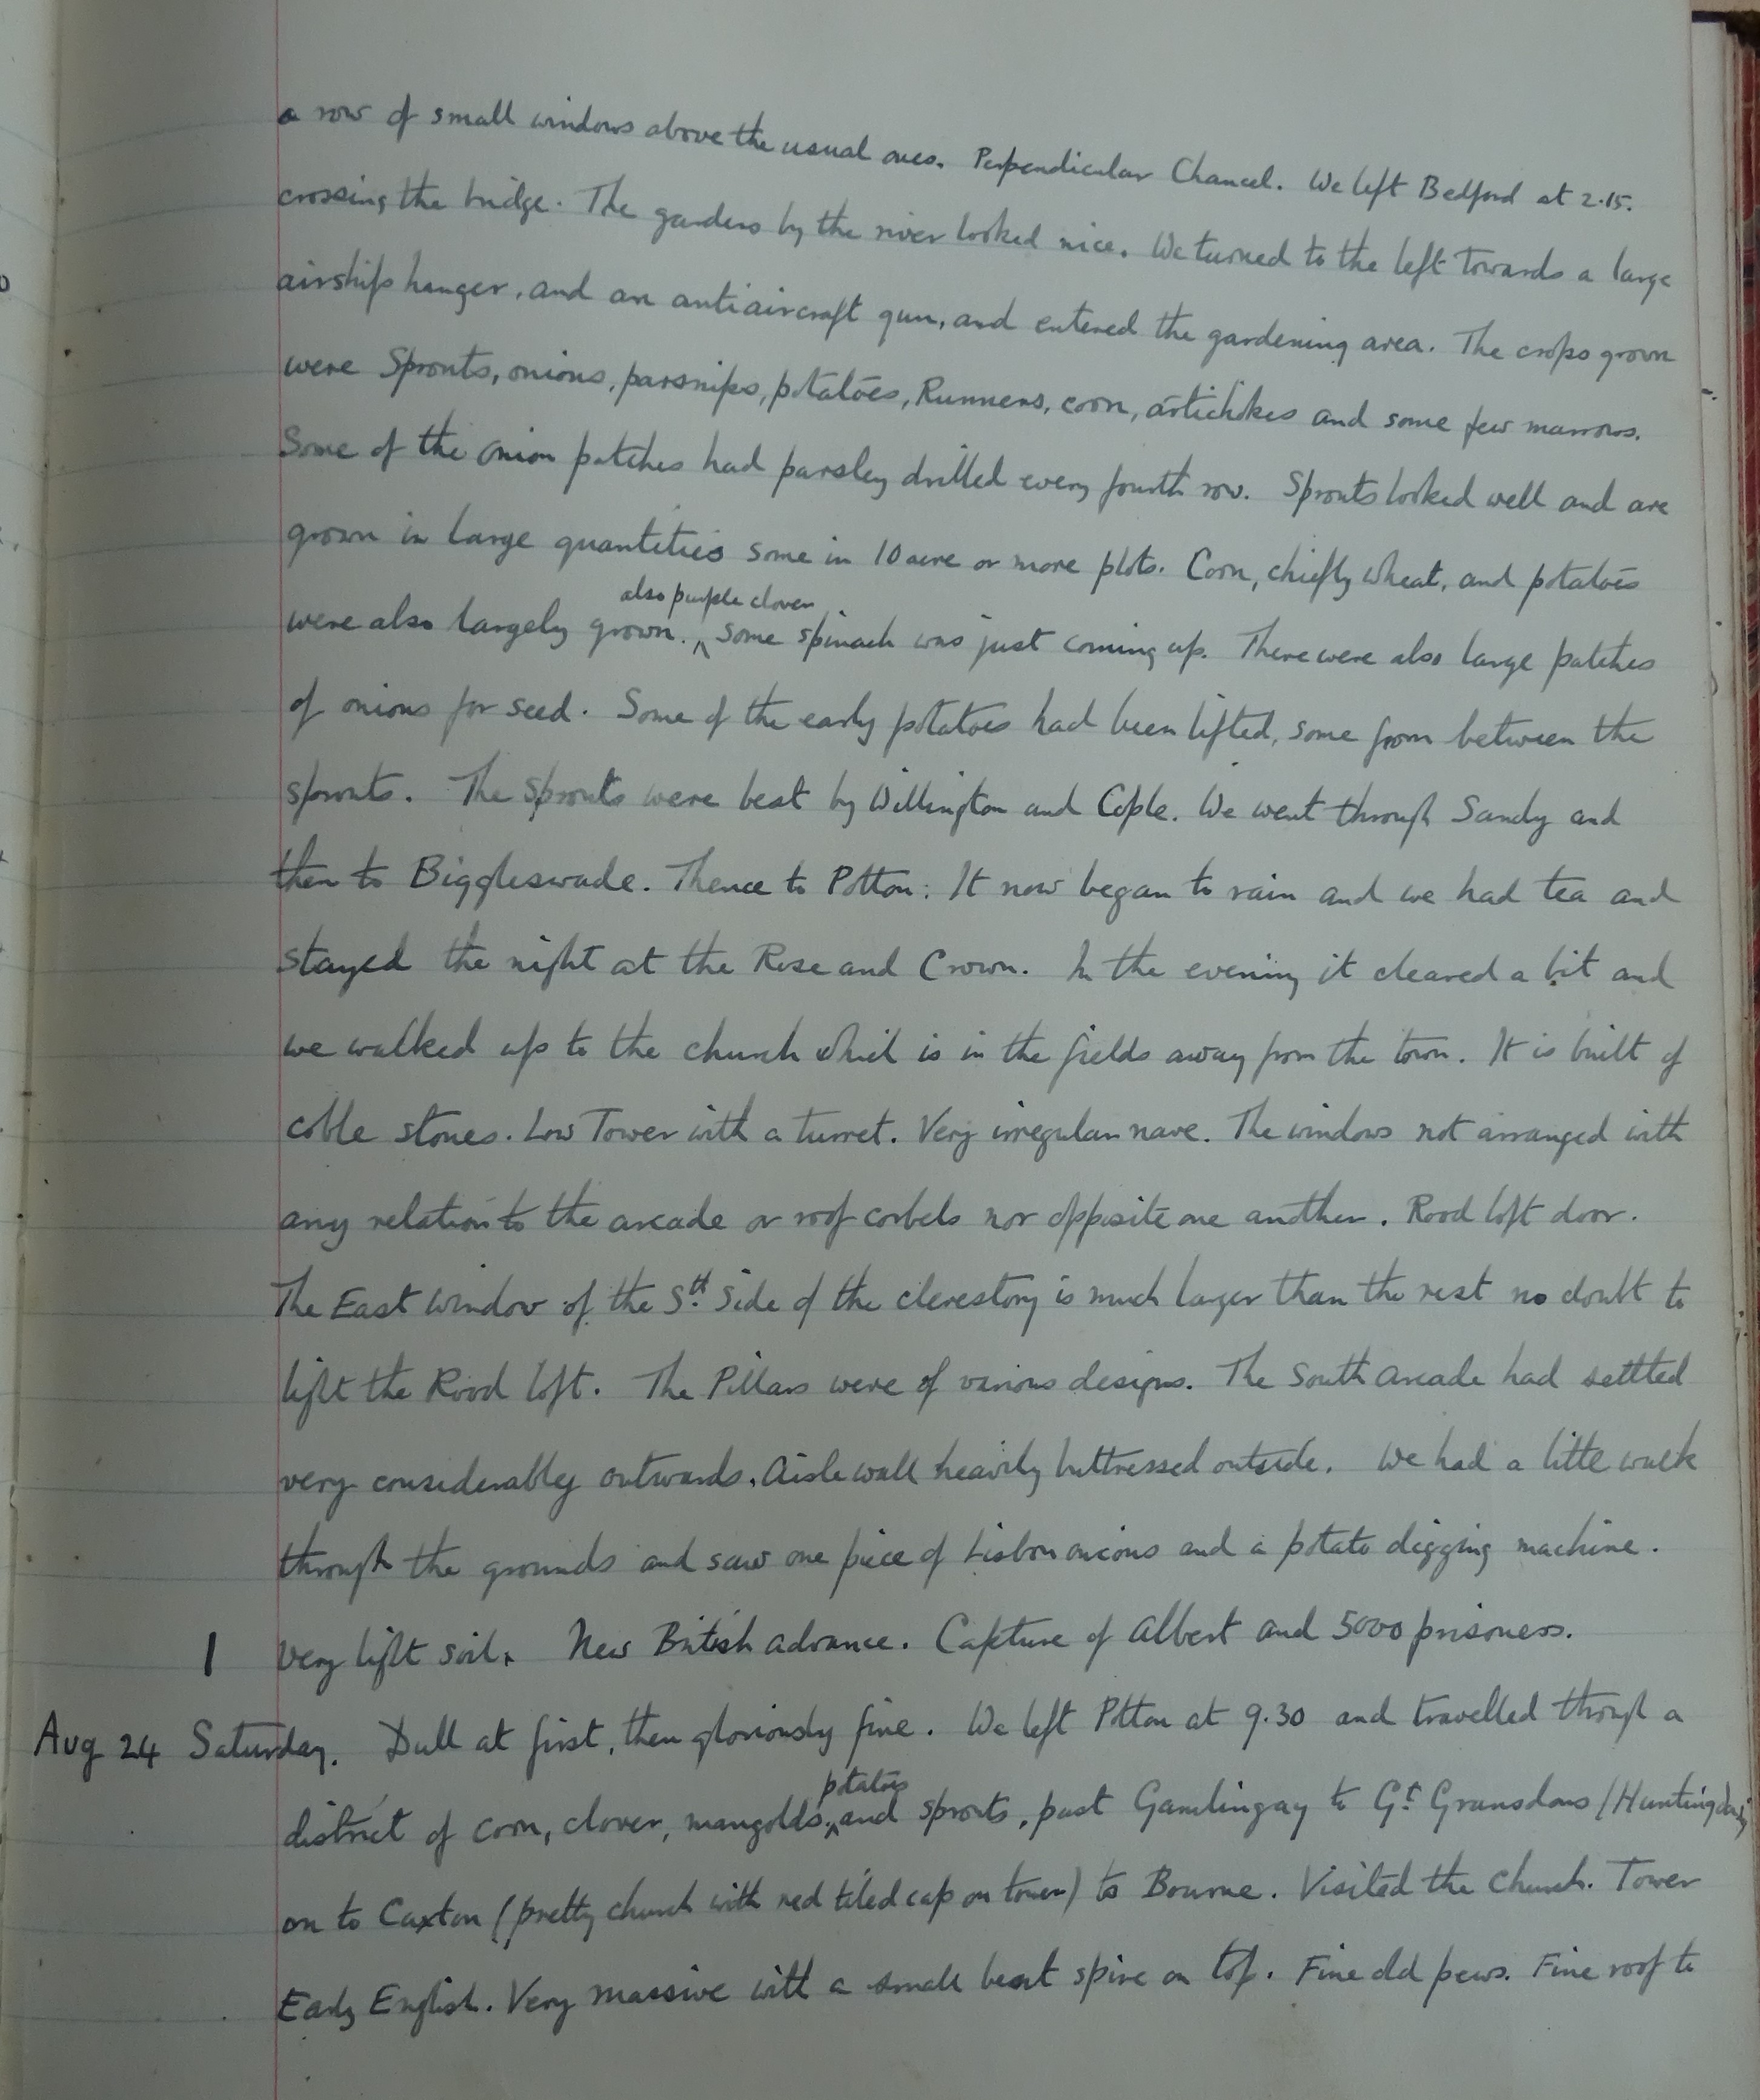 a row of small windows above the usual ones. Perpendicular Chancel. We left Bedford at 2.15.
crossing the bridge. The gardens by the river looked nice. We turned to the left towards a large
airship hanger, and an antiaircraft gun, and entered the gardening area. The crops grown
were Sprouts, onions, parsnips, potatoes, Runners, corn, artichokes and some few marrows.
Some of the onion patches had parsley drilled every fourth row. Sprouts looked well and are
grown in large quantities some in 10 acre or more plots. Corn, chiefly wheat, and potatoes
also purple clover
were also largely grown. ^ Some spinach was just coming up. There were also large patches
of onions for seed. Some of the early potatoes had been lifted, some from between the
sprouts. The Sprouts were best by Willington and Cople. We went through Sandy and
then to Biggleswade. Thence to Potton. It now began to rain and we had tea and
stayed the night at the Rose and Crown. In the evening it cleared a bit and
we walked up to the church which is in the fields away from the town. It is built of
coble stones. Low Tower with a turret. Very irregular nave. The windows not arranged with
any relation to the arcade or roof corbels nor opposite one another. Rood loft door.
The East window of the Sth. Side of the clerestory is much larger than the rest no doubt to
light the Rood loft. The Pillars were of various designs. The South arcade had settled
very considerably outwards. Aisle wall heavily buttressed outside. We had a little walk
through the grounds and saw one piece of Lisbon onions and a potato digging machine.
1 Very light soil. New British advance. Capture of Albert and 5000 prisoners.
Aug 24 Saturday. Dull at first, then gloriously fine. We left Potton at 9.30 and travelled through a
potatoes
district of corn, clover, mangolds, ^ and sprouts, past Gamlingay to Gt. Gransdons (Huntingdon)
on to Caxton (pretty church with red tiled cap on tower) to Bourne. Visited the church. Tower
Early English. Very massive with a small bent spire on top. Fine old pews. Fine roof to